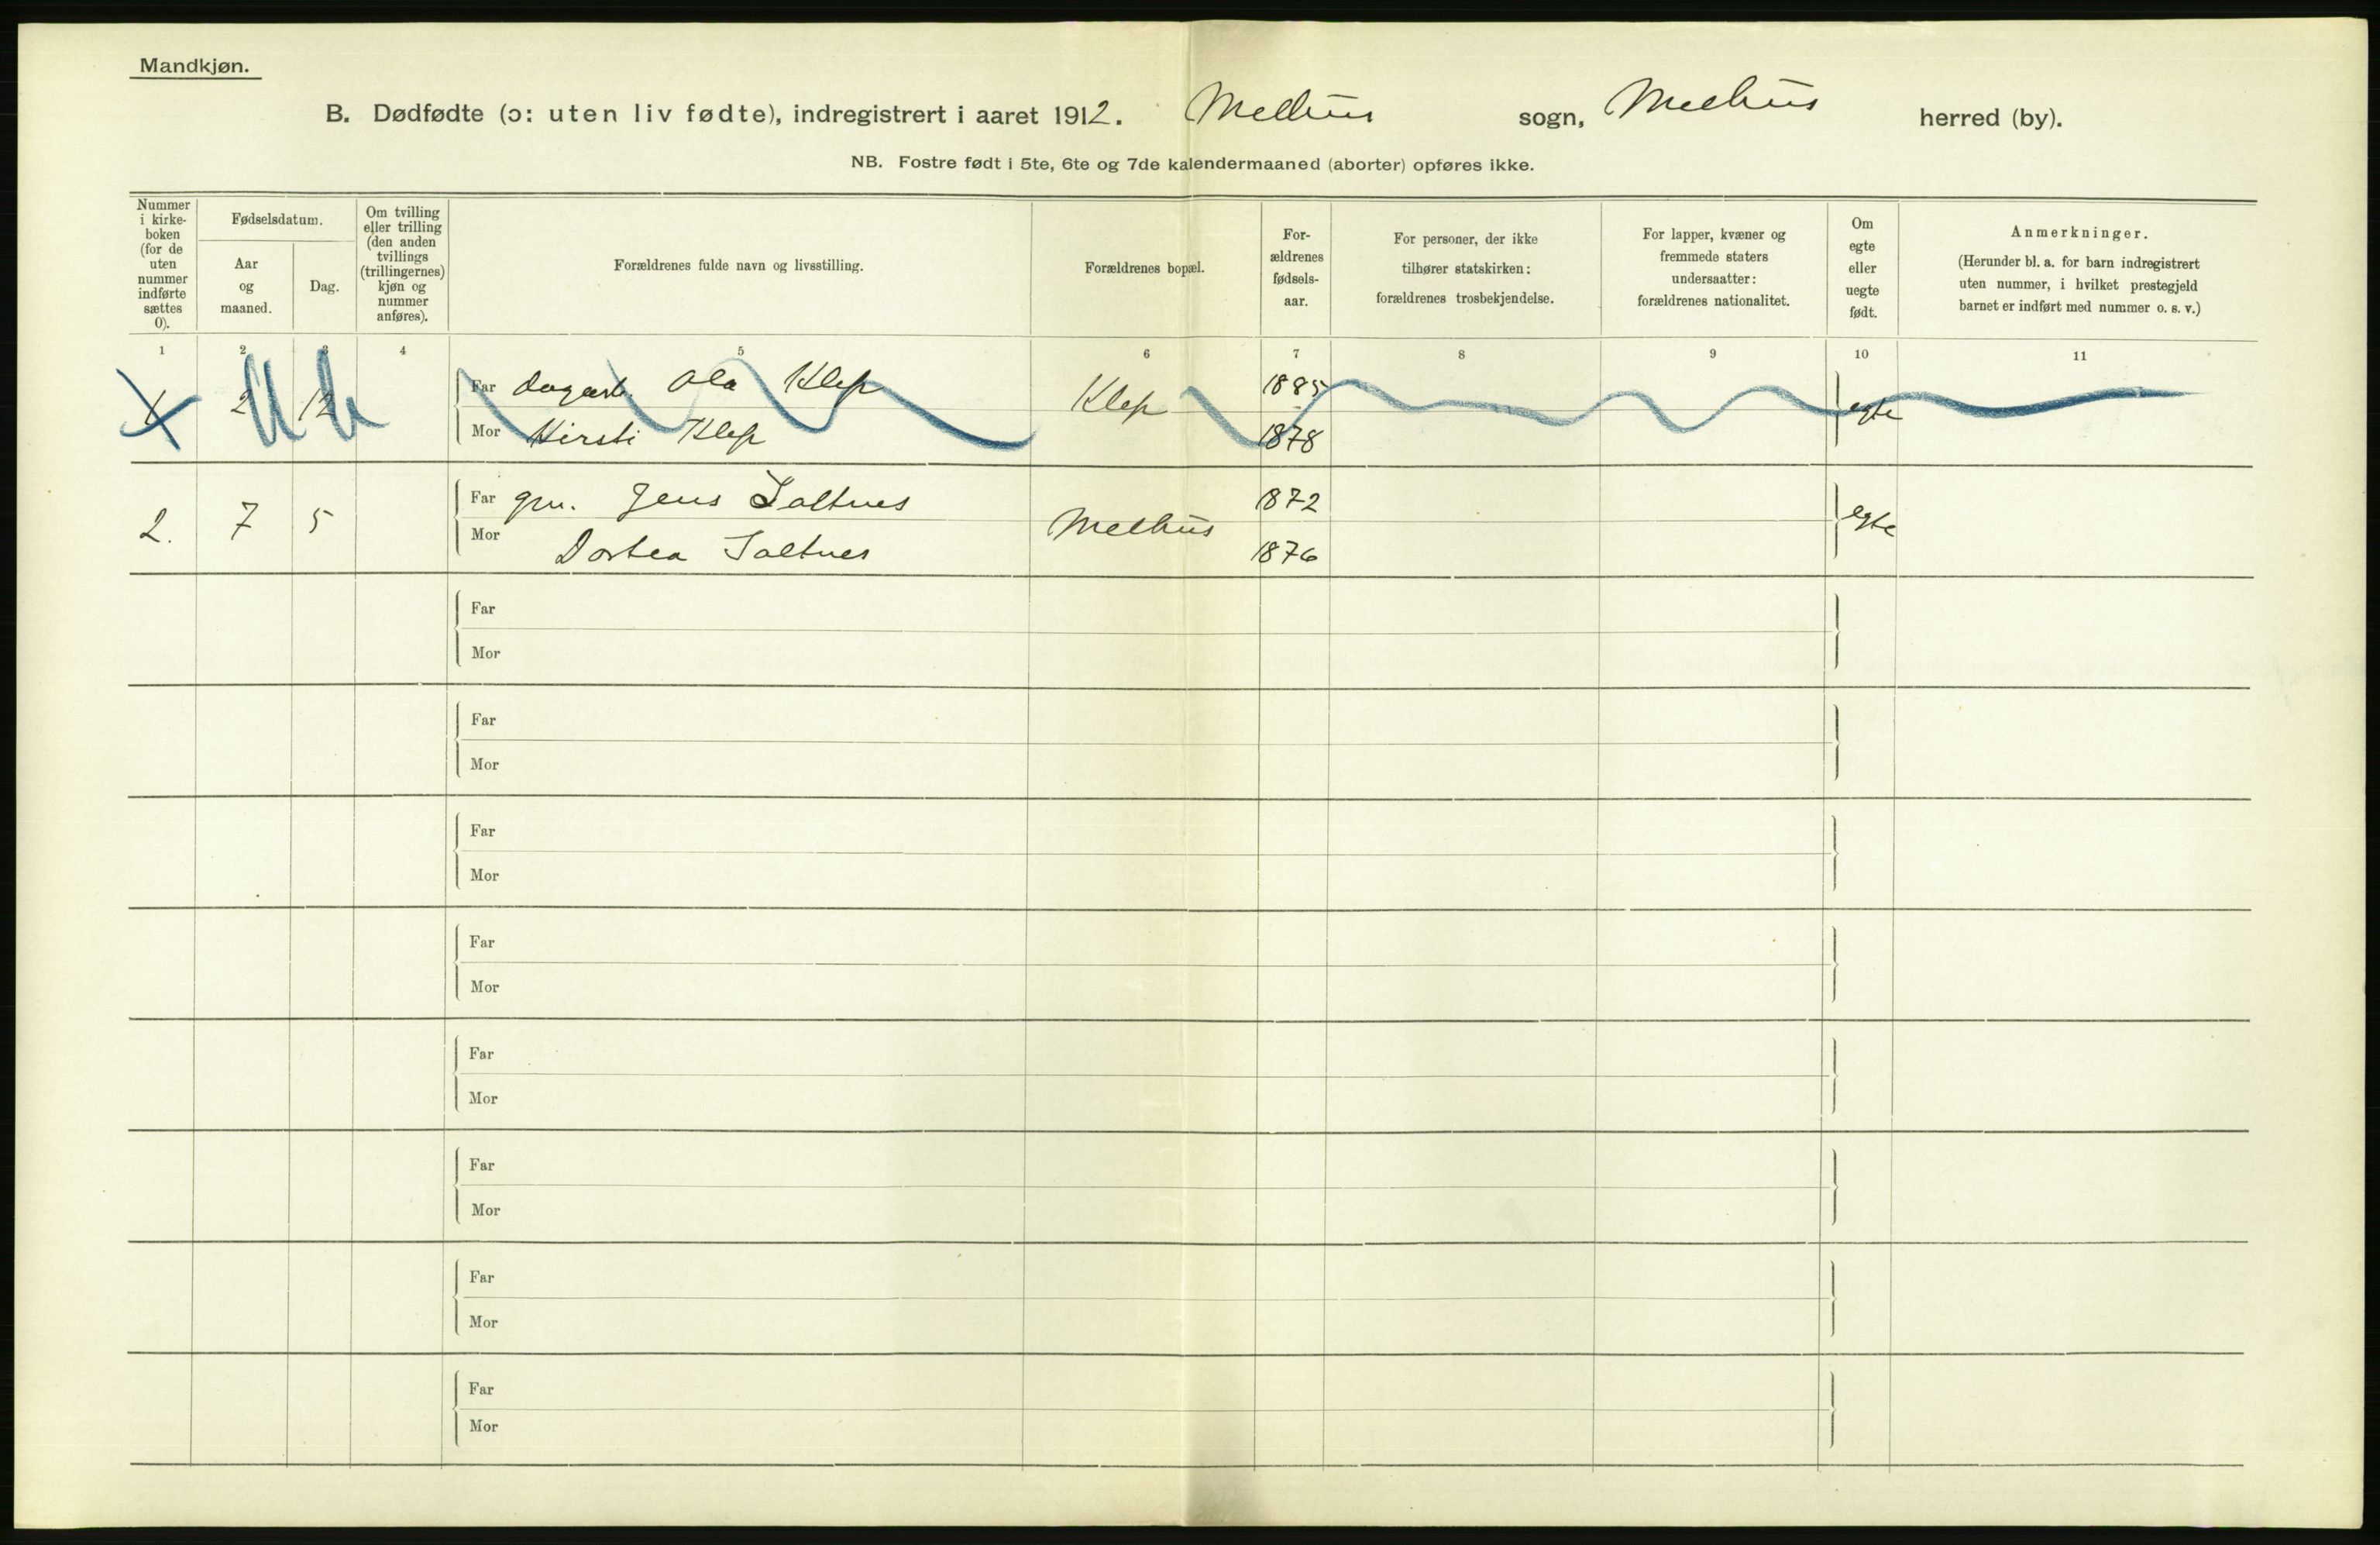 Mandkjøn.
B. Dødfødte (ɔ: uten liv fødte), indregistrert i aaret 1912. Melhus sogn, Melhus herred (by).
NB. Fostre født i 5te, 6te og 7de kalendermaaned (aborter) opføres ikke.
Nummer
i kirke-
boken
(for de
uten
nummer
indførte
sættes
0).
Fødselsdatum.
Aar
og
maaned.
Dag.
Om tvilling
eller trilling
(den anden
tvillings
(trillingernes)
kjøn og
nummer
anføres).
Forældrenes fulde navn og livsstilling.
Forældrenes bopæl.
For-
ældrenes
fødsels-
aar.
For personer, der ikke
tilhører statskirken:
forældrenes trosbekjendelse.
For lapper, kvæner og
fremmede staters
undersaatter:
forældrenes nationalitet.
Om
egte
eller
uegte
født.
Anmerkninger.
(Herunder bl. a. for barn indregistrert
uten nummer, i hvilket prestegjeld
barnet er indført med nummer o. s. v.)
1 2 3 4 5 6 7 8 9 10 11
1 2 12 Far Ola Klep Klep 1885 egte
Mor Kirsti Klep 1878
2. 7 5 Far gm. Jens Saltnes Melhus 1872 egte
Mor Dortea Saltnes 1876
Far
Mor
Far
Mor
Far
Mor
Far
Mor
Far
Mor
Far
Mor
Far
Mor
Far
Mor